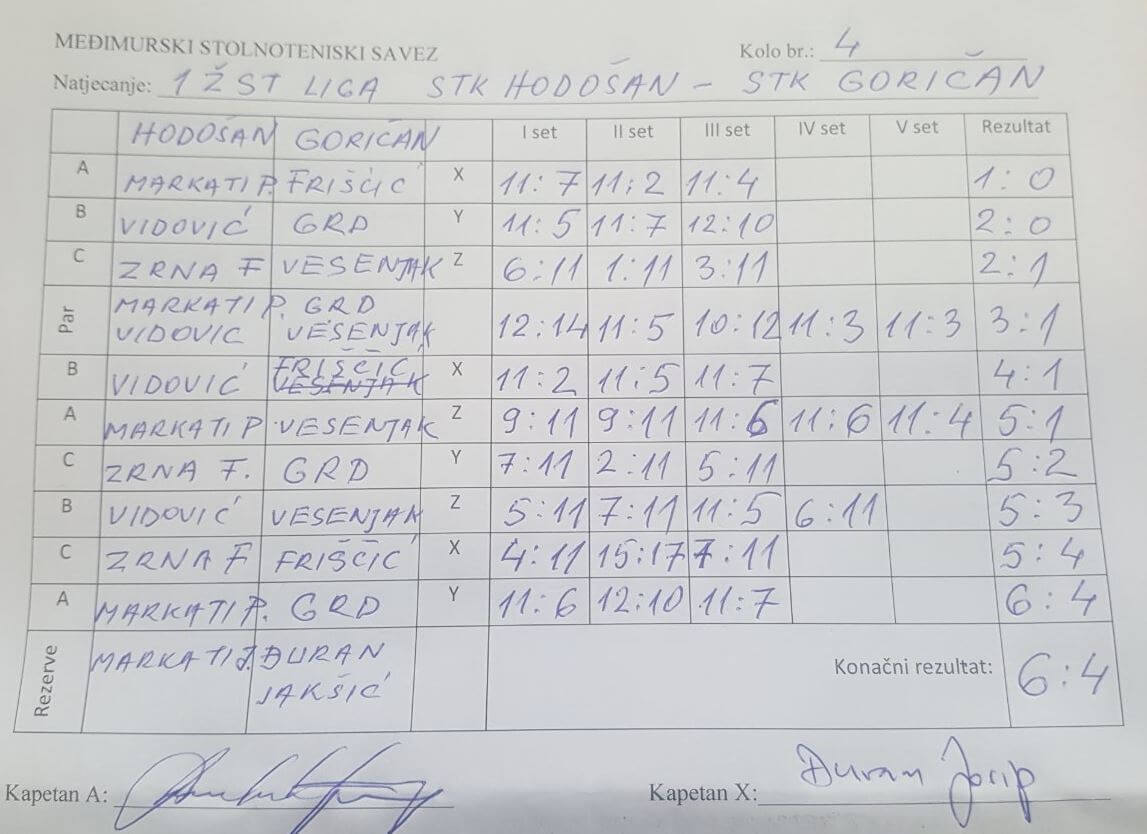 MEĐIMURSKI STOLNOTENISKI SAVEZ Kolo br.: 4
Natjecanje: 1 ŽST LIGA STK HODOŠAN - STK GORIČAN
HODOŠAN GORIČAN I set II set III set IV set V set Rezultat
A MARKATI P. FRIŠČIĆ X 11:7 11:2 11:4 1:0
B VIDOVIĆ GRD Y 11:5 11:7 12:10 2:0
C ZRNA F VESENJAK Z 6:11 1:11 3:11 2:1
Par MARKATI P. GRD
VIDOVIC VESENJAK 12:14 11:5 10:12 11:3 11:3 3:1
B VIDOVIĆ FRIŠČIĆ X 11:2 11:5 11:7 4:1
VESENJAK
A MARKATI P. VESENJAK Z 9:11 9:11 11:6 11:6 11:4 5:1
C ZRNA F. GRD Y 7:11 2:11 5:11 5:2
B VIDOVIĆ VESENJAK Z 5:11 7:11 11:5 6:11 5:3
C ZRNA F FRIŠČIĆ X 4:11 15:17 7:11 5:4
A MARKATI P. GRD Y 11:6 12:10 11:7 6:4
Rezerve MARKATI J. ĐURAN Konačni rezultat: 6:4
JAKŠIĆ
Kapetan A: Kapetan X: Đuran Josip